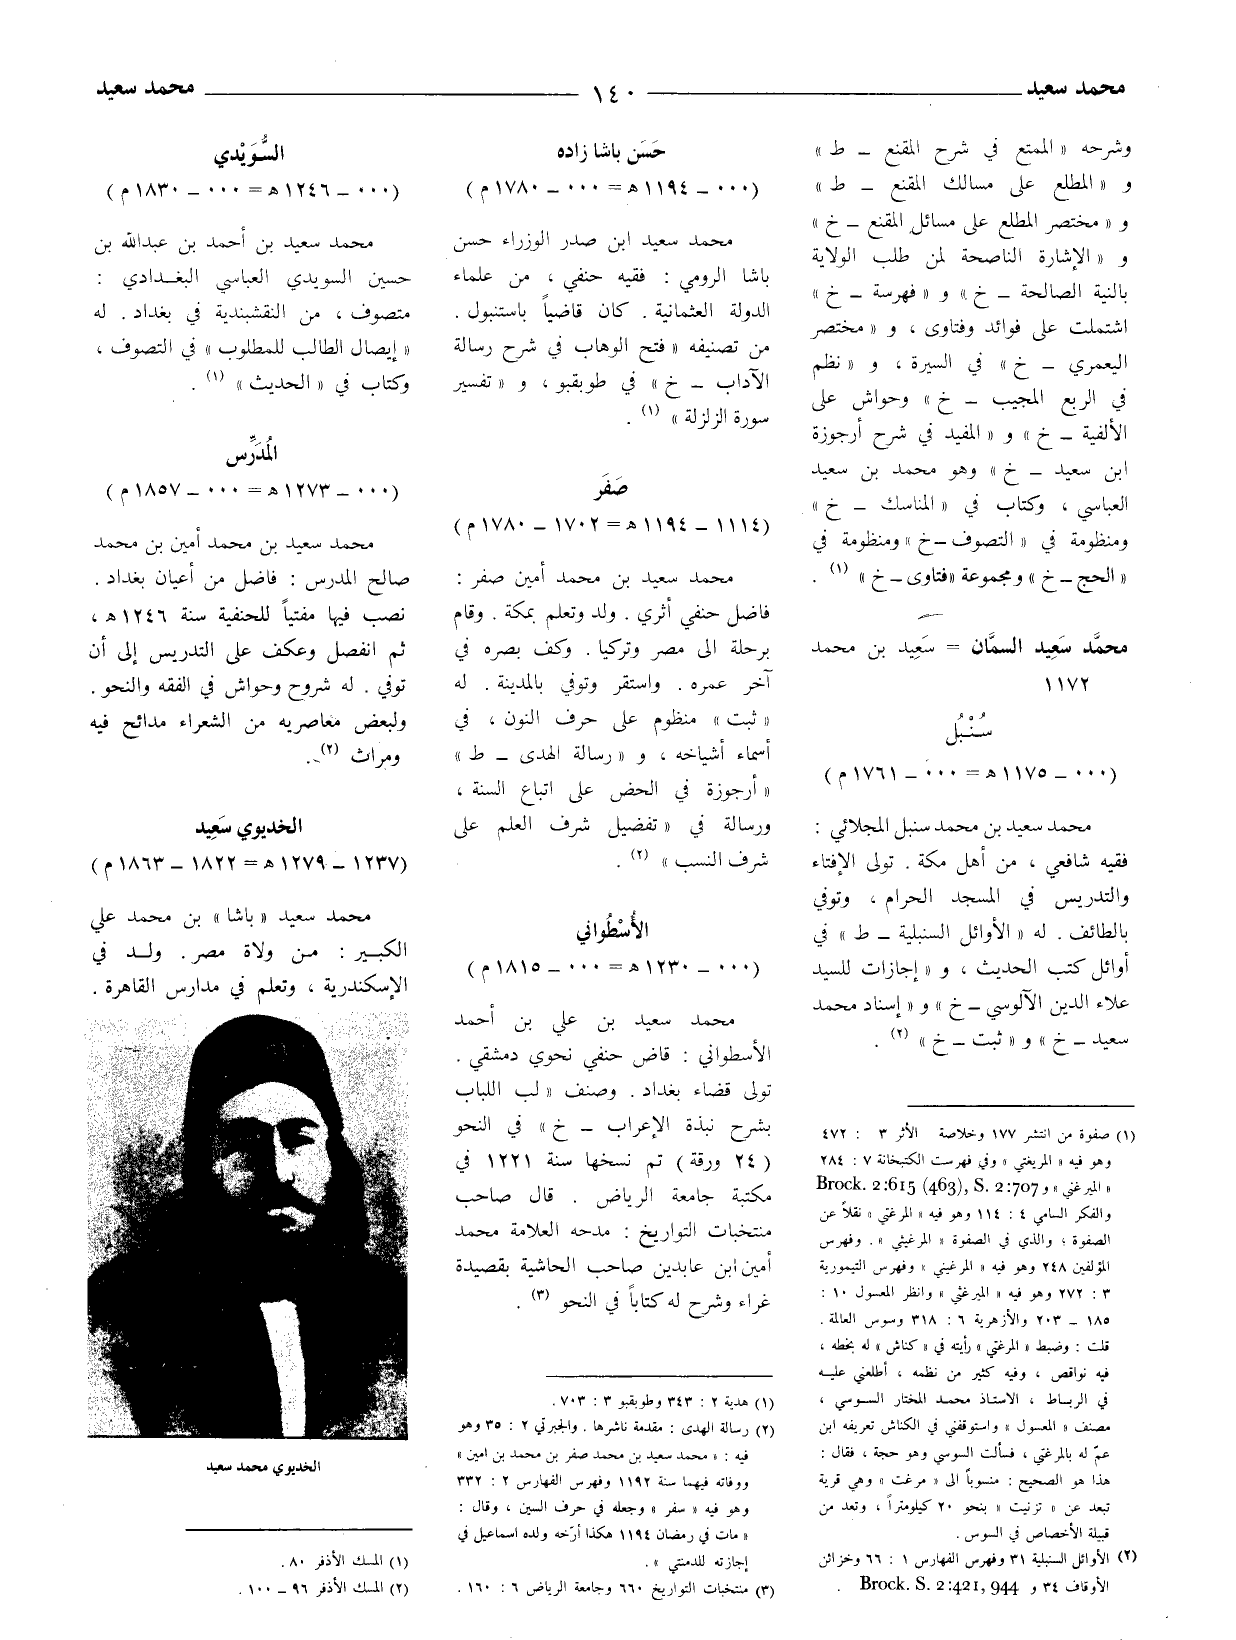 محمد سعيد ١٤٠ محمد سعيد
وشرحه « الممتع في شرح المقنع ــ ط »
و « المطلع على مسالك المقنع ــ ط »
و « مختصر المطلع على مسائل المقنع ــ خ »
و « الإشارة الناصحة لمن طلب الولاية
بالنية الصالحة ــ خ » و « فهرسة ــ خ »
اشتملت على فوائد وفتاوى ، و « مختصر
اليعمري ــ خ » في السيرة ، و « نظم
في الربع المجيب ــ خ » وحواش على
الألفية ــ خ » و « المفيد في شرح أرجوزة
ابن سعيد ــ خ » وهو محمد بن سعيد
العباسي ، وكتاب في « المناسك ــ خ »
ومنظومة في « التصوف ــ خ » ومنظومة في
« الحج ــ خ » ومجموعة «فتاوى ــ خ » (١) .
محمَّد سَعِيد السمَّان = سَعِيد بن محمد
١١٧٢
سُنْبُل
(٠٠٠ ــ ١١٧٥ هـ = ٠٠٠ ــ ١٧٦١ م )
محمد سعيد بن محمد سنبل المجلائي :
فقيه شافعي ، من أهل مكة . تولى الإفتاء
والتدريس في المسجد الحرام ، وتوفي
بالطائف . له « الأوائل السنبلية ــ ط » في
أوائل كتب الحديث ، و « إجازات للسيد
علاء الدين الآلوسي ــ خ » و « إسناد محمد
سعيد ــ خ » و « ثبت ــ خ » (٢) .
(١) صفوة من انتشر ١٧٧ وخلاصة الأثر ٣ : ٤٧٢
وهو فيه « المريغتي » وفي فهرست الكتبخانة ٧ : ٢٨٤
« الميرغني » و Brock. 2:615 (463), S. 2:707
والفكر السامي ٤ : ١١٤ وهو فيه « المرغتي » نقلاً عن
الصفوة ؛ والذي في الصفوة « المرغيثي » . وفهرس
المؤلفين ٢٤٨ وهو فيه « المرغيني » وفهرس التيمورية
٣ : ٢٧٢ وهو فيه « الميرغثي » وانظر المعسول ١٠ :
١٨٥ ــ ٢٠٣ والأزهرية ٦ : ٣١٨ وسوس العالمة .
قلت : وضبط « المرغتي » رأيته في « كناش » له بخطه ،
فيه نواقص ، وفيه كثير من نظمه ، أطلعني عليه
في الرباط ، الاستاذ محمد المختار السوسي ،
مصنف « المعسول » واستوقفني في الكناش تعريفه ابن
عمّ له بالمرغتي ، فسألت السوسي وهو حجة ، فقال :
هذا هو الصحيح : منسوباً الى « مرغت » وهي قرية
تبعد عن « تزنيت » بنحو ٢٠ كيلومتراً ، وتعد من
قبيلة الأخصاص في السوس .
(٢) الأوائل السنبلية ٣١ وفهرس الفهارس ١ : ٦٦ وخزائن
الأوقاف ٣٤ و Brock. S. 2:421, 944 .
حَسَن باشا زاده
(٠٠٠ ــ ١١٩٤ هـ = ٠٠٠ ــ ١٧٨٠ م )
محمد سعيد ابن صدر الوزراء حسن
باشا الرومي : فقيه حنفي ، من علماء
الدولة العثمانية . كان قاضياً باستنبول .
من تصنيفه « فتح الوهاب في شرح رسالة
الآداب ــ خ » في طوبقبو ، و « تفسير
سورة الزلزلة » (١) .
صَفَر
(١١١٤ ــ ١١٩٤ هـ = ١٧٠٢ ــ ١٧٨٠ م )
محمد سعيد بن محمد أمين صفر :
فاضل حنفي أثري . ولد وتعلم بمكة . وقام
برحلة الى مصر وتركيا . وكف بصره في
آخر عمره . واستقر وتوفي بالمدينة . له
« ثبت » منظوم على حرف النون ، في
أسماء أشياخه ، و « رسالة الهدى ــ ط »
« أرجوزة في الحض على اتباع السنة ،
ورسالة في « تفضيل شرف العلم على
شرف النسب » (٢) .
الأُسْطُواني
(٠٠٠ ــ ١٢٣٠ هـ = ٠٠٠ ــ ١٨١٥ م )
محمد سعيد بن علي بن أحمد
الأسطواني : قاض حنفي نحوي دمشقي .
تولى قضاء بغداد . وصنف « لب اللباب
بشرح نبذة الإعراب ــ خ » في النحو
( ٢٤ ورقة ) تم نسخها سنة ١٢٢١ في
مكتبة جامعة الرياض . قال صاحب
منتخبات التواريخ : مدحه العلامة محمد
أمين ابن عابدين صاحب الحاشية بقصيدة
غراء وشرح له كتاباً في النحو (٣) .
(١) هدية ٢ : ٣٤٣ وطوبقبو ٣ : ٧٠٣.
(٢) رسالة الهدى : مقدمة ناشرها . والجبرتي ٢ : ٣٥ وهو
فيه : « محمد سعيد بن محمد صفر بن محمد بن امين »
ووفاته فيهما سنة ١١٩٢ وفهرس الفهارس ٢ : ٣٣٢
وهو فيه « سفر » وجعله في حرف السين ، وقال :
« مات في رمضان ١١٩٤ هكذا أرّخه ولده اسماعيل في
إجازته للدمنتي » .
(٣) منتخبات التواريخ ٦٦٠ وجامعة الرياض ٦ : ١٦٠ .
السُّوَيْدي
(٠٠٠ ــ ١٢٤٦ هـ = ٠٠٠ ــ ١٨٣٠ م )
محمد سعيد بن أحمد بن عبدالله بن
حسين السويدي العباسي البغدادي :
متصوف ، من النقشبندية في بغداد . له
« إيصال الطالب للمطلوب » في التصوف ،
وكتاب في « الحديث » (١) .
المُدَرِّس
(٠٠٠ ــ ١٢٧٣ هـ = ٠٠٠ ــ ١٨٥٧ م )
محمد سعيد بن محمد أمين بن محمد
صالح المدرس : فاضل من أعيان بغداد .
نصب فيها مفتياً للحنفية سنة ١٢٤٦ هـ ،
ثم انفصل وعكف على التدريس إلى أن
توفي . له شروح وحواش في الفقه والنحو .
ولبعض معاصريه من الشعراء مدائح فيه
ومراث (٢) .
الخديوي سَعِيد
(١٢٣٧ ــ ١٢٧٩ هـ = ١٨٢٢ ــ ١٨٦٣ م )
محمد سعيد « باشا » بن محمد علي
الكبير : من ولاة مصر . ولد في
الإسكندرية ، وتعلم في مدارس القاهرة .
الخديوي محمد سعيد
(١) المسك الأذفر ٨٠ .
(٢) المسك الأذفر ٩٦ ــ ١٠٠ .